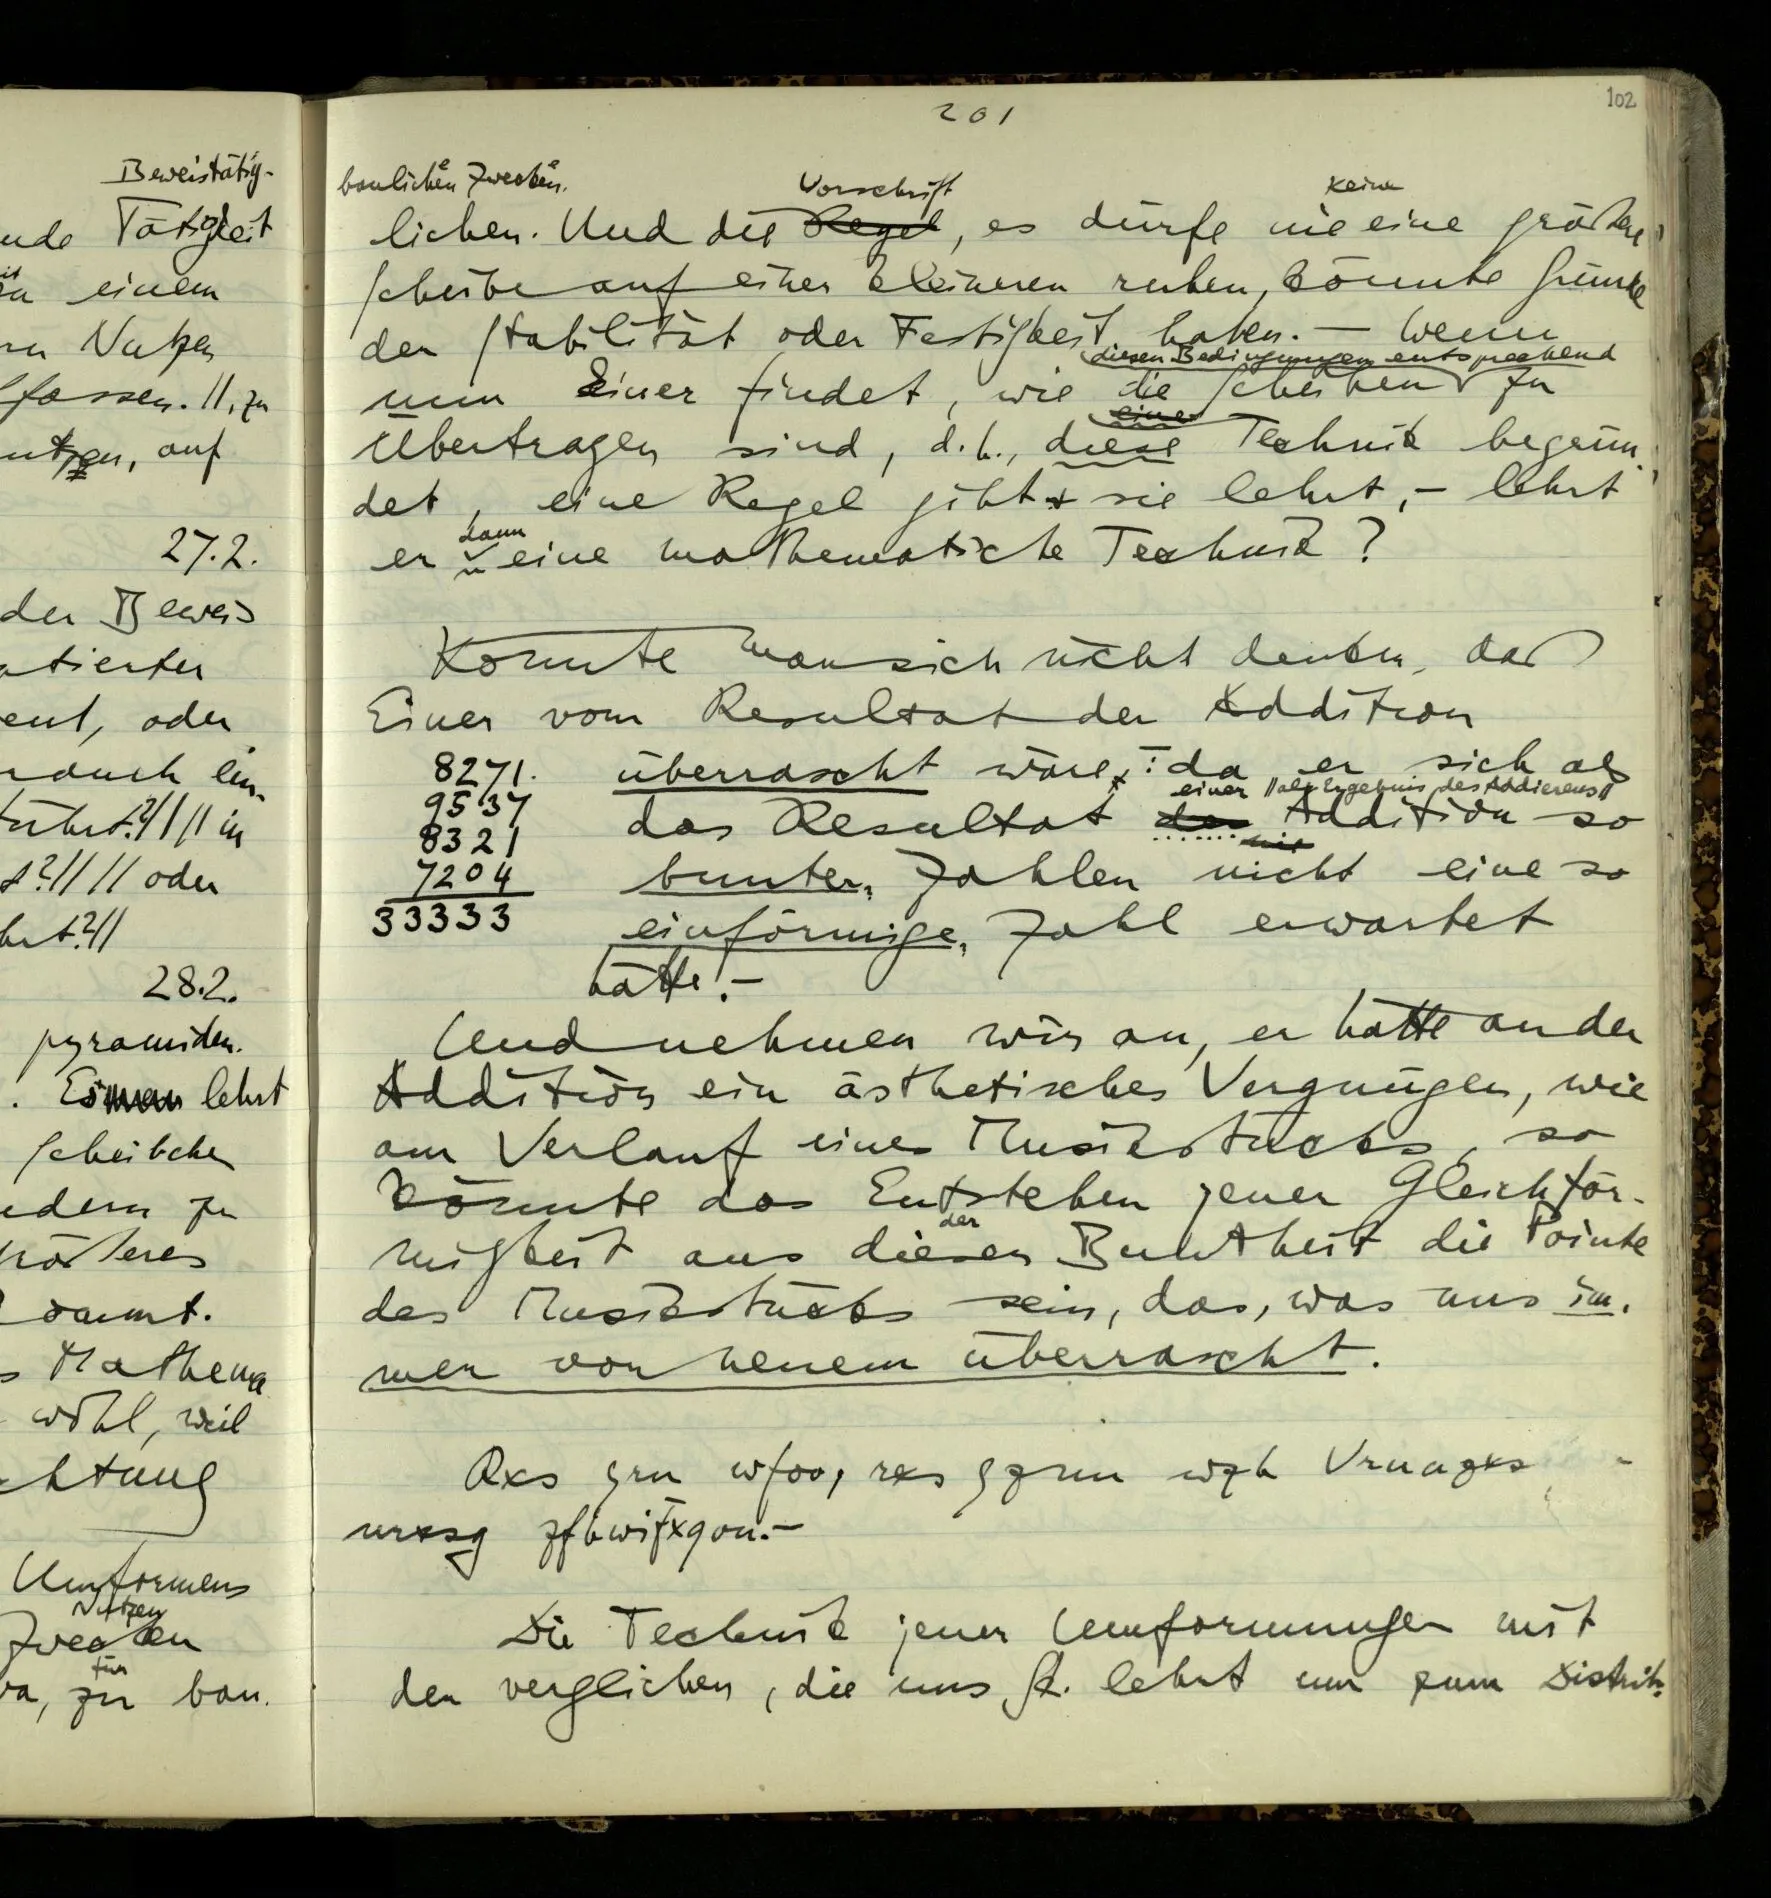 Beweistätig-
nde Tätigkeit
einem
Nutzen
fassen. //, zu
auf
27.2.
der Beweis
ent, oder
oder
28.2.
pyramiden.
lehrt
Scheibchen
ndern zu
größeres
kommt.
Mathema
wohl, weil
chtung
Umformens
Nutzen
Zwecken
für
zu bau.
201
102
baulichen Zwecken.
Vorschrift
keine
lichen. Und die Regel, es dürfe nie eine größere
Scheibe auf einer kleineren ruhen, könnte Gründe
der Stabilität oder Festigkeit haben. – Wenn
diesen Bedingungen entsprechend
nun Einer findet, wie die Scheiben zu
einer
übertragen sind, d.h., diese Technik begrün
det, eine Regel gibt & sie lehrt, – lehrt
dann
er eine mathematische Technik?
Könnte man sich nicht denken, daß
Einer vom Resultat der Addition
8271. überrascht wäre: da er sich als
einer // als Ergebnis des Addierens //
9537 das Resultat der Addition so
8321
7204 bunter, Zahlen nicht eine so
33333 einförmige, Zahl erwartet
hätte! –
Und nehmen wir an, er hätte an der
Addition ein ästhetisches Vergnügen, wie
am Verlauf eines Musikstücks, so
könnte das Entstehen jener Gleichför-
der
migkeit aus dieser Buntheit die Pointe
des Musikstücks sein, das, was uns im.
mer von neuem überrascht.
Rxs yrn wfoo, rxs gzrnm wzh Vrnagxs
urxsg zfhwifxqon. –
Die Technik jener Umformungen mit
der verglichen, die uns St. lehrt um zum Distrib.